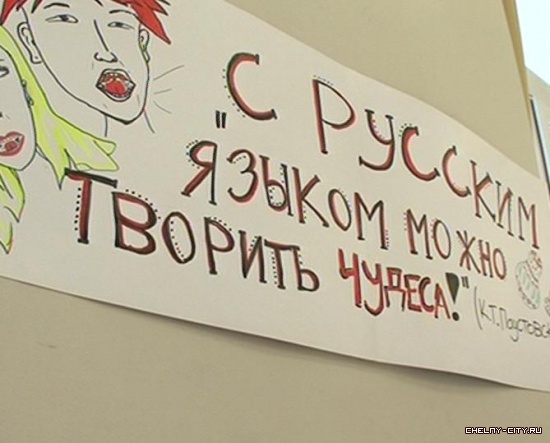 "С РУССКИМ
ЯЗЫКОМ МОЖНО
ТВОРИТЬ ЧУДЕСА!"
(К.Г. Паустовск
CHELNY-CITY.RU